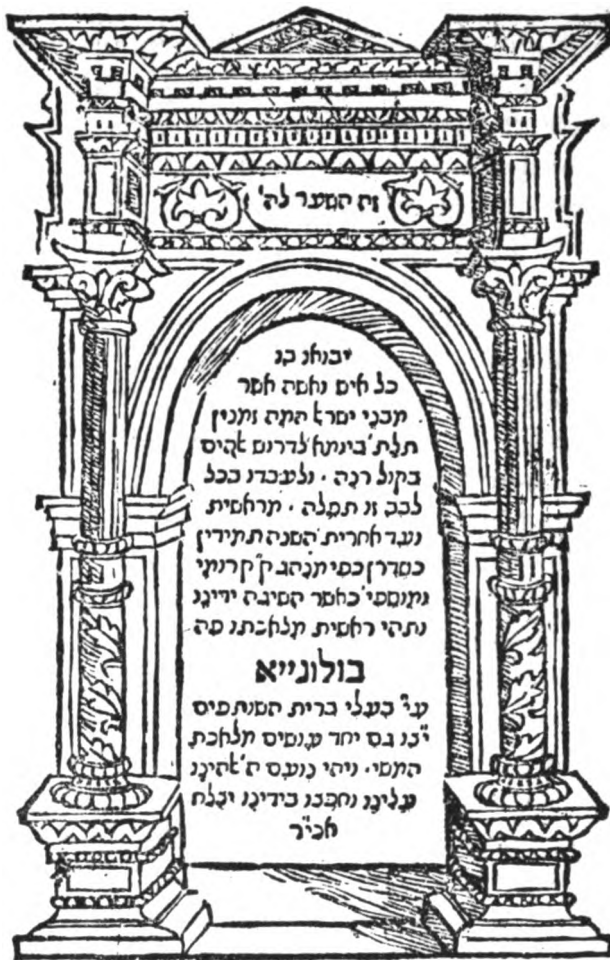 זה השער לה'
יבואו בו
כל איש ואשה אשר
מבני ישרא המה ומנין
תלת בינתא לדרוש אהים
בקול רנה · ולעבדו בכל
לבב זו תפלה · מראשית
ועד אחרית השנה תמידין
כסדרן כפי מנהג ק"ק רומי
ומוספי' כאשר השיגה ידינו
ותהי ראשית מלאכתנו פה
בולונייא
ע"י בעלי ברית השותפים
י"בו גם יחד עושים מלאכת
המשי · ויהי נועם ה' אהינו
עלינו וחפצו בידינו יצלח
אכי"ר